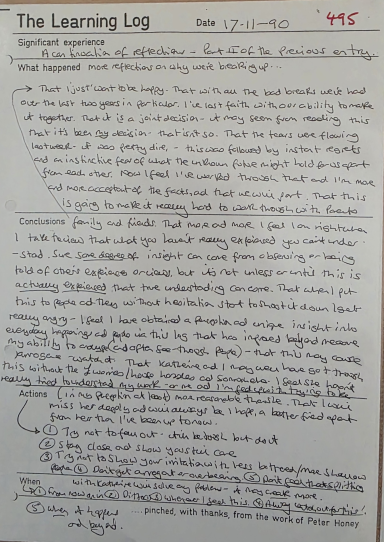 The Learning Log Date 17-11-90 495
Significant experience
A continuation of reflections - Part II of the previous entry.
What happened more reflections on why we're breaking up...
→ That I just want to be happy. That with all the bad breaks we've had
over the last two years in particular. I've lost faith with our ability to make
it together. That it is a joint decision - it may seem from reading this
that it's been my decision - that isn't so. That the tears were flowing
last week - it was pretty dire, - this was followed by instant regrets
and an instinctive fear of what the unknown future might hold for us apart
from each other. Now I feel I've worked through that and I'm more
and more acceptant of the facts, and that we will part. That this
is going to make it really hard to work through with
Conclusions family and friends. That more and more I feel I am right when
I take the view that what you haven't really experienced you can't under-
-stand. Sure some degree of insight can come from observing or being
told of others experience or views, but it's not unless or until this is
actually experienced that true understanding can come. That when I put
this to people and they without hesitation start to shoot it down I get
really angry - I feel I have obtained a and unique insight into
everyday happenings and people via this log that has improved beyond measure
my ability to and often see-through people - that this may cause
arrogance - watch it. That Katherine and I may well have got through
this without the I feel she hasn't
really tried to understand my work
Actions (in my) more reasonable That I will
miss her deeply and will always be, I hope, a better friend apart
from her than I've been up to now.
→ ① Try not to fall out - it'll be hard but do it
② Stay close and show you still care
③ Try not to show your irritation with less /more shallow
people ④ Don't get arrogant or overbearing ⑤ Don't feel that splitting
When with Katherine will solve any problem - it may create more.
→ ① From now on ② Ditto ③ whenever I feel this. ④ Always watch out for this!
⑤ when it happens
and beyond. ....pinched, with thanks, from the work of Peter Honey